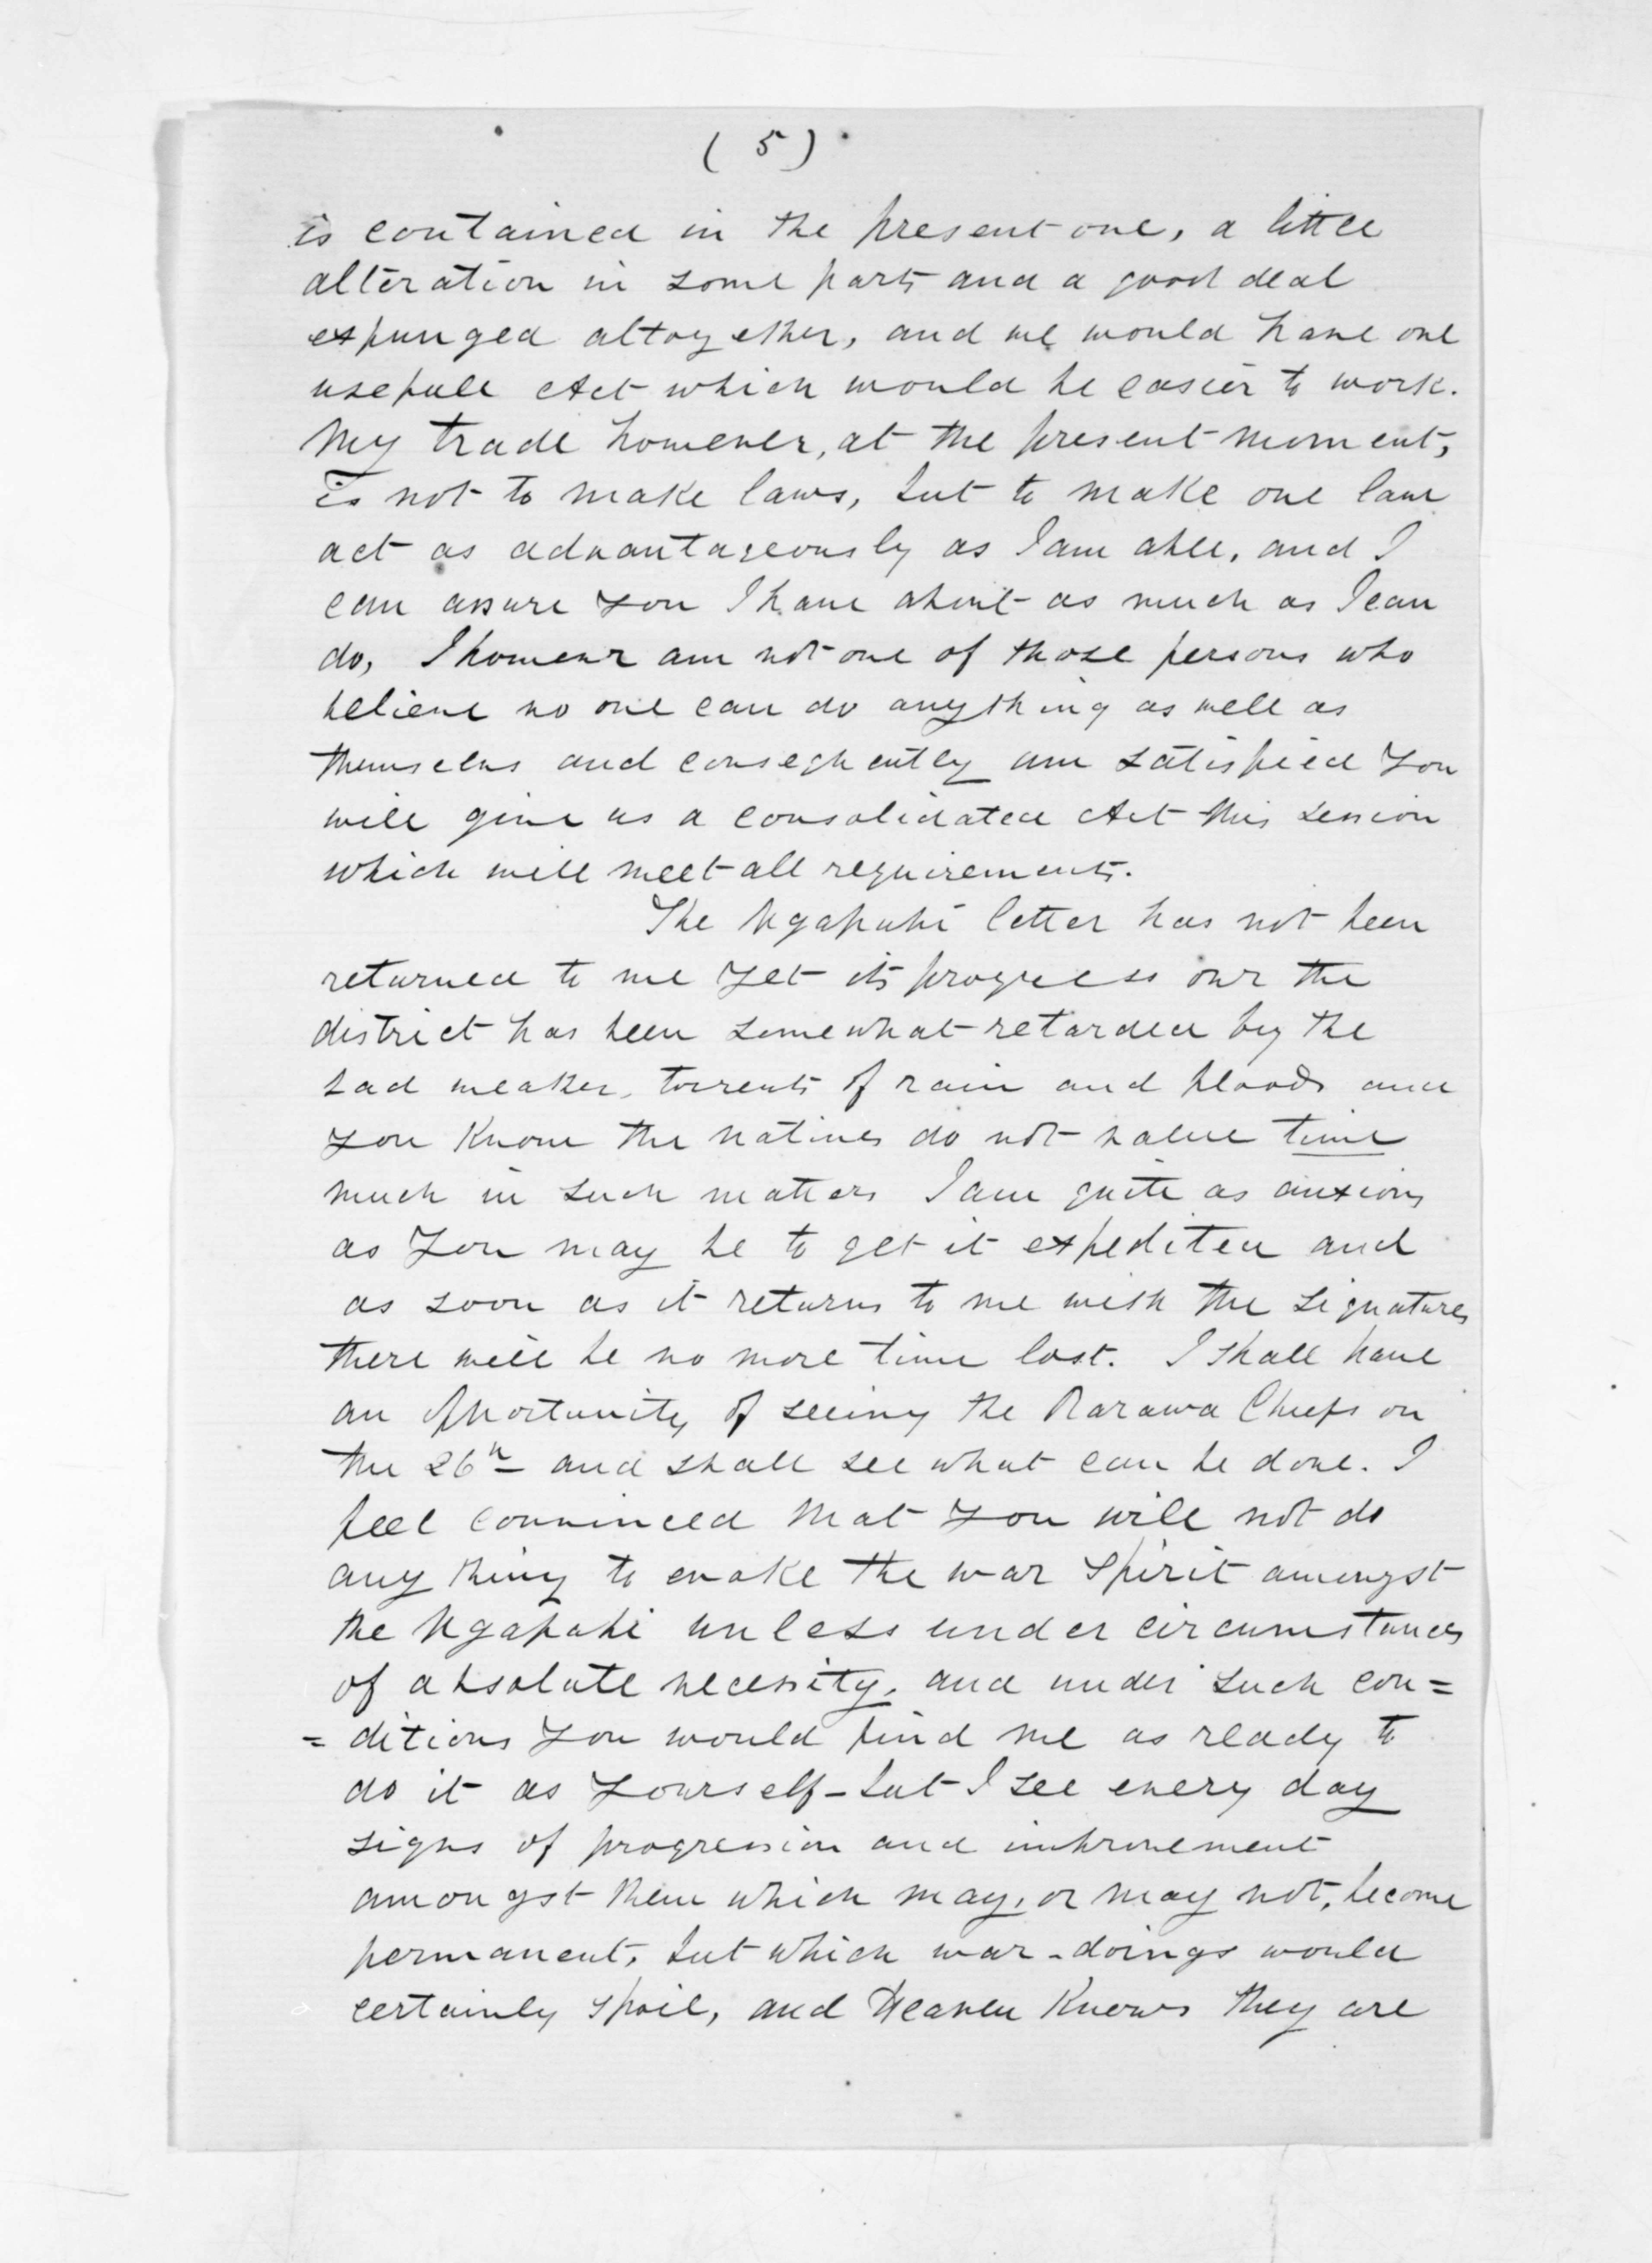 ( 5 )
is contained in the present one, a little
alteration in some parts and a good deal
expunged altogether, and we would have one
usefull Act which would be easier to work.
My trade however, at the present moment,
is not to make laws, but to make one law
act as advantageously as I am able, and I
can assure you I have about as much as I can
do, I however am not one of those persons who
believe no one can do anything as well as
themselves and consequently am satisfied you
will give us a consolidated Act this session
which will meet all requirements.
The Ngapuhi letter has not been
returned to me yet its progress over the
district has been somewhat retarded by the
bad weather, torrents of rain and floods and
you know the natives do not value time
much in such matters I am quite as anxious
as you may be to get it expedited and
as soon as it returns to me with the signatures
there will be no more time lost. I shall have
an opportunity of seeing the Rarawa Chiefs on
the 26th and shall see what can be done. I
feel convinced that you will not do
any thing to evoke the war spirit amongst
the Ngapuhi unless under circumstances
of absolute necessity, and under such con=
=ditions you would find me as ready to
do it as yourself - but I see every day
signs of progression and improvement
amongst them which may, or may not, become
permanent, but which war-doings would
certainly spoil, and Heaven knows they are